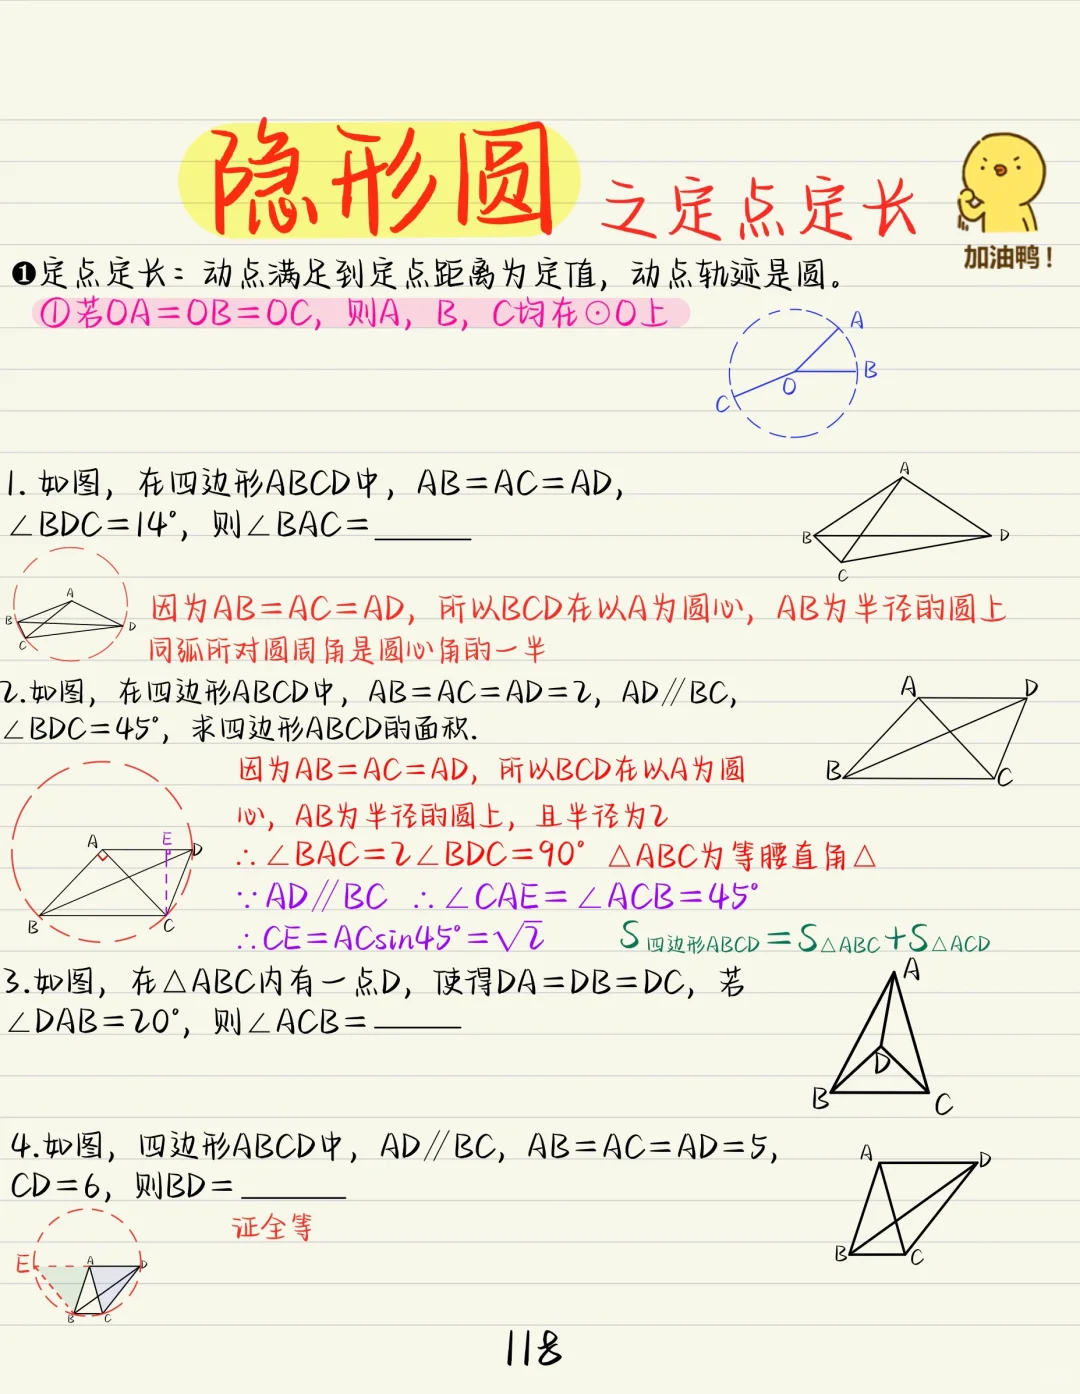 隐形圆 之定点定长
加油鸭!
❶定点定长：动点满足到定点距离为定值，动点轨迹是圆。
①若OA=OB=OC，则A，B，C均在⊙O上
A
B
O
C
1. 如图，在四边形ABCD中，AB=AC=AD，
∠BDC=14°，则∠BAC=______
A
B
D
C
A
B
D
C
因为AB=AC=AD，所以BCD在以A为圆心，AB为半径的圆上
同弧所对圆周角是圆心角的一半
2.如图，在四边形ABCD中，AB=AC=AD=2，AD∥BC，
∠BDC=45°，求四边形ABCD的面积.
A
D
B
C
因为AB=AC=AD，所以BCD在以A为圆
心，AB为半径的圆上，且半径为2
∴∠BAC=2∠BDC=90° △ABC为等腰直角△
∵AD∥BC ∴∠CAE=∠ACB=45°
∴CE=ACsin45°=√2 S四边形ABCD=S△ABC+S△ACD
A
E
D
B
C
3.如图，在△ABC内有一点D，使得DA=DB=DC，若
∠DAB=20°，则∠ACB=______
A
D
B
C
4.如图，四边形ABCD中，AD∥BC，AB=AC=AD=5，
CD=6，则BD=______
A
D
B
C
证全等
E
A
D
B
C
118